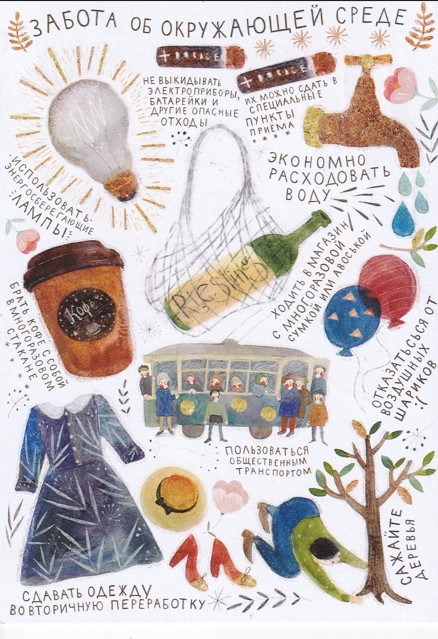 ЗАБОТА ОБ ОКРУЖАЮЩЕЙ СРЕДЕ
НЕ ВЫКИДЫВАТЬ
ЭЛЕКТРОПРИБОРЫ,
БАТАРЕЙКИ И
ДРУГИЕ ОПАСНЫЕ
ОТХОДЫ
ИХ МОЖНО СДАТЬ В
СПЕЦИАЛЬНЫЕ
ПУНКТЫ
ПРИЕМА
ИСПОЛЬЗОВАТЬ
ЭНЕРГОСБЕРЕГАЮЩИЕ
ЛАМПЫ
ЭКОНОМНО
РАСХОДОВАТЬ
ВОДУ
ХОДИТЬ В МАГАЗИН
С МНОГОРАЗОВОЙ
СУМКОЙ ИЛИ АВОСЬКОЙ
Кофе
БРАТЬ КОФЕ С СОБОЙ
В МНОГОРАЗОВОМ
СТАКАНЕ
ОТКАЗАТЬСЯ ОТ
ВОЗДУШНЫХ
ШАРИКОВ
:(
ПОЛЬЗОВАТЬСЯ
ОБЩЕСТВЕННЫМ
ТРАНСПОРТОМ
СДАВАТЬ ОДЕЖДУ
ВО ВТОРИЧНУЮ ПЕРЕРАБОТКУ
САЖАЙТЕ
ДЕРЕВЬЯ